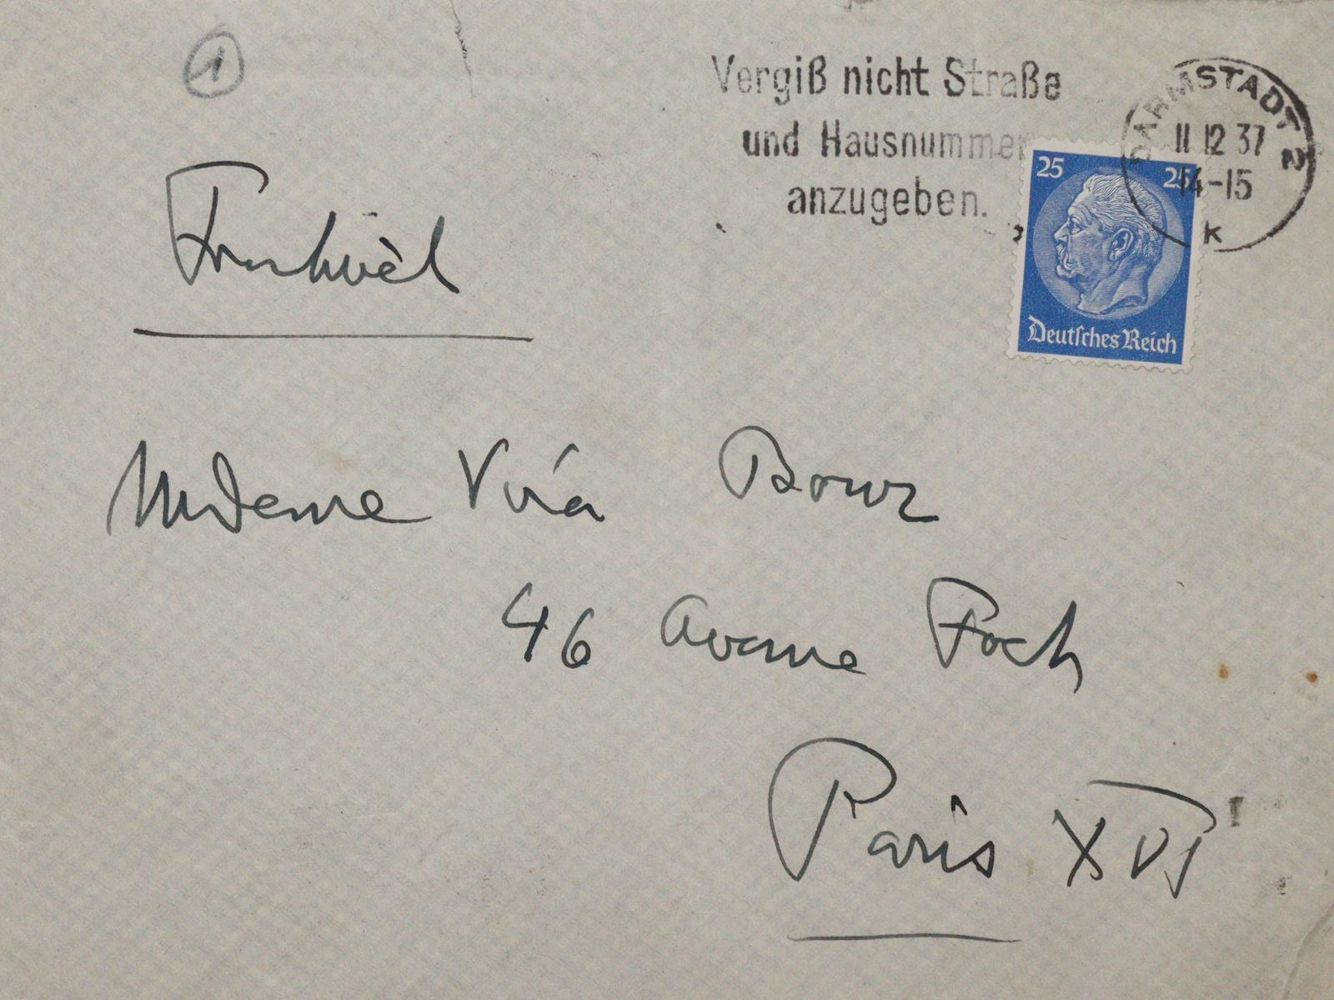 1
Vergiß nicht Straße
und Hausnummer
anzugeben.
DARMSTADT 2
11 12 37
14-15
k
25 25
Deutsches Reich
Frankreich
Madame Vira
46 Avenue Foch
Paris XVI